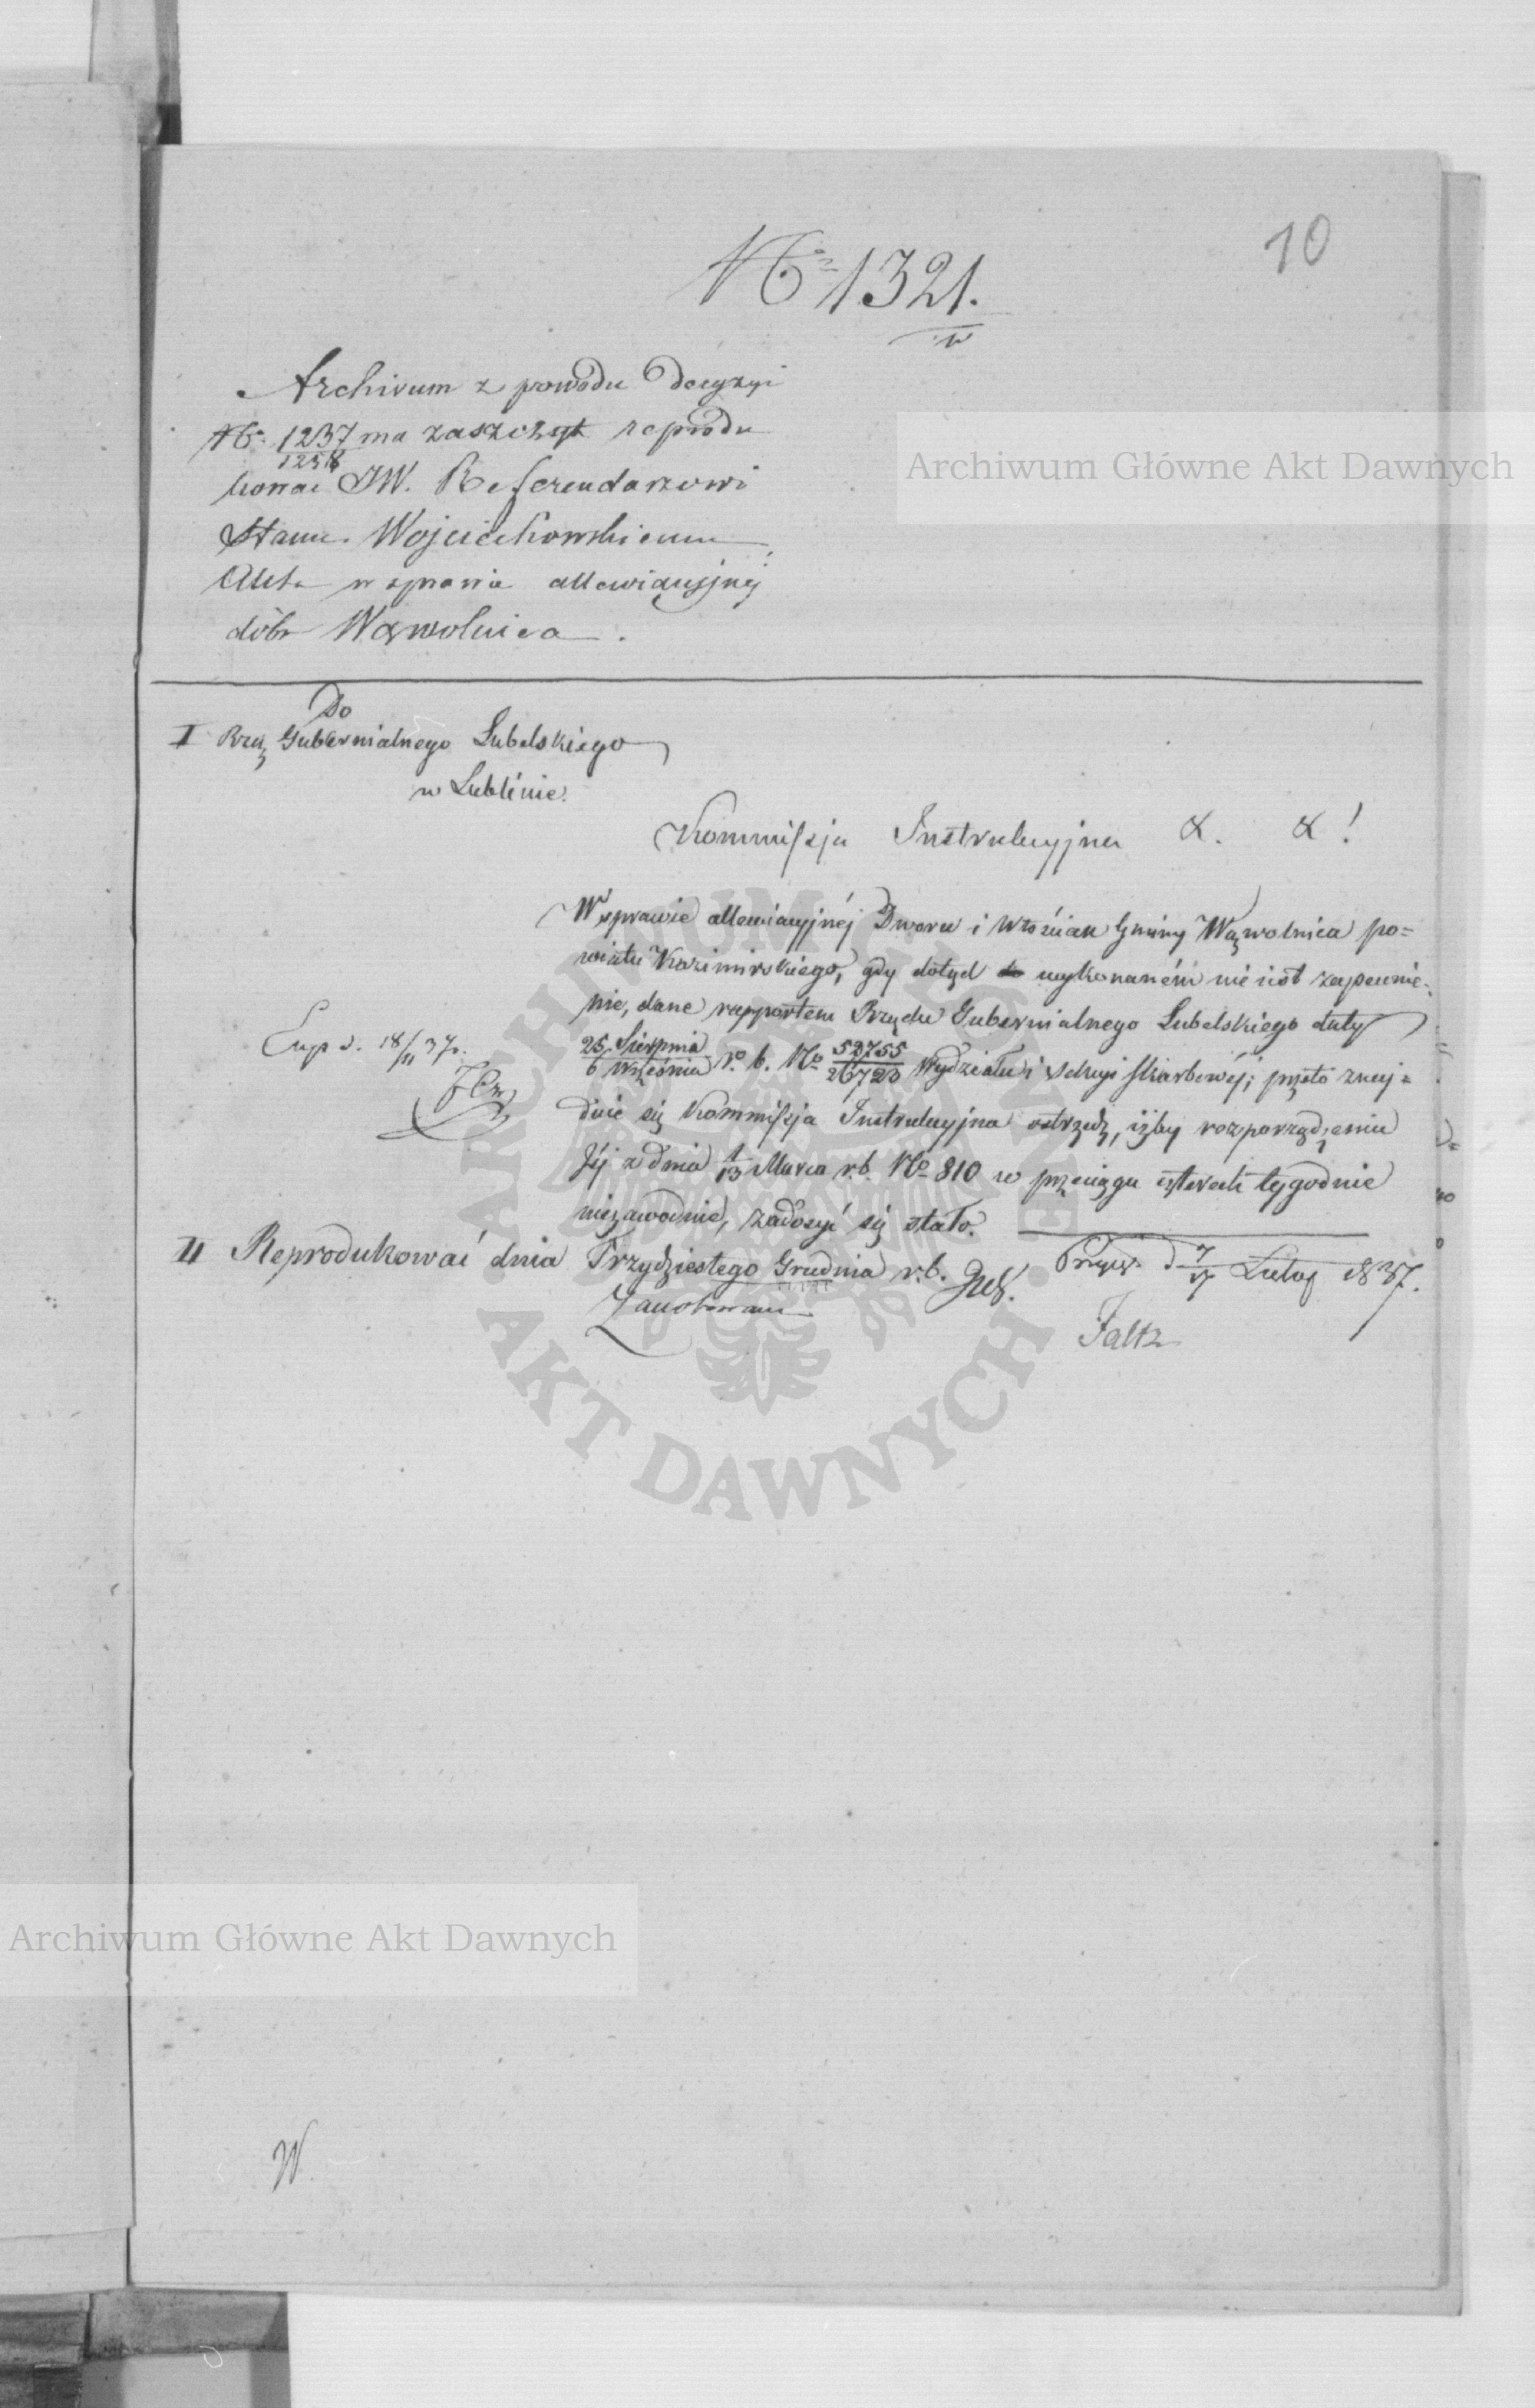 10
No 1321.
w
Archivum z powodu decyzyi
No 1237 ma zaszczyt reprodu
1238
kować JW. Referendarzowi
Stanu Wojciechowskiemu
Akta w sprawie allewiacyjnéj
dóbr Wąwolnica.
Do
I Rzą. Gubernialnego Lubelskiego
w Lublinie.
Kommissja Instrukcyjna & . & !
W sprawie allewiacyjnéj Dworu i Włościan Gminy Wąwolnica po=
wiatu Kazimirskiego, gdy dotąd wykonaném nie iest zapewnie=
nie, dane rapportem Rządu Gubernialnego Lubelskiego daty
25 Sierpnia / 6 Września r. b. No 52755 / 26720 Wydziału i Sekcyi Skarbowéj; przeto znaj=
Exp d. 18/11 37 r.
duie się Kommissja Instrukcyjna iżby rozporządzeniu
Jéj z dnia 1/13 Marca r. b. No 810 w przeciągu czterech tygodnie
niezawodnie, zadosyć się stało.
II Reprodukować dnia Trzydziestego Grudnia r. b.
d 7 Lutego 1837.
Zanotowano
Faltz
W.
Archiwum Główne Akt Dawnych
Archiwum Główne Akt Dawnych
ARCHIWUM GŁÓWNE AKT DAWNYCH